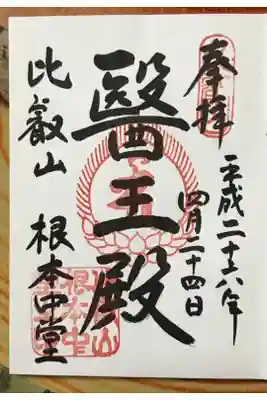 奉拝
平成二十八年
四月二十四日
醫王殿
比叡山
根本中堂